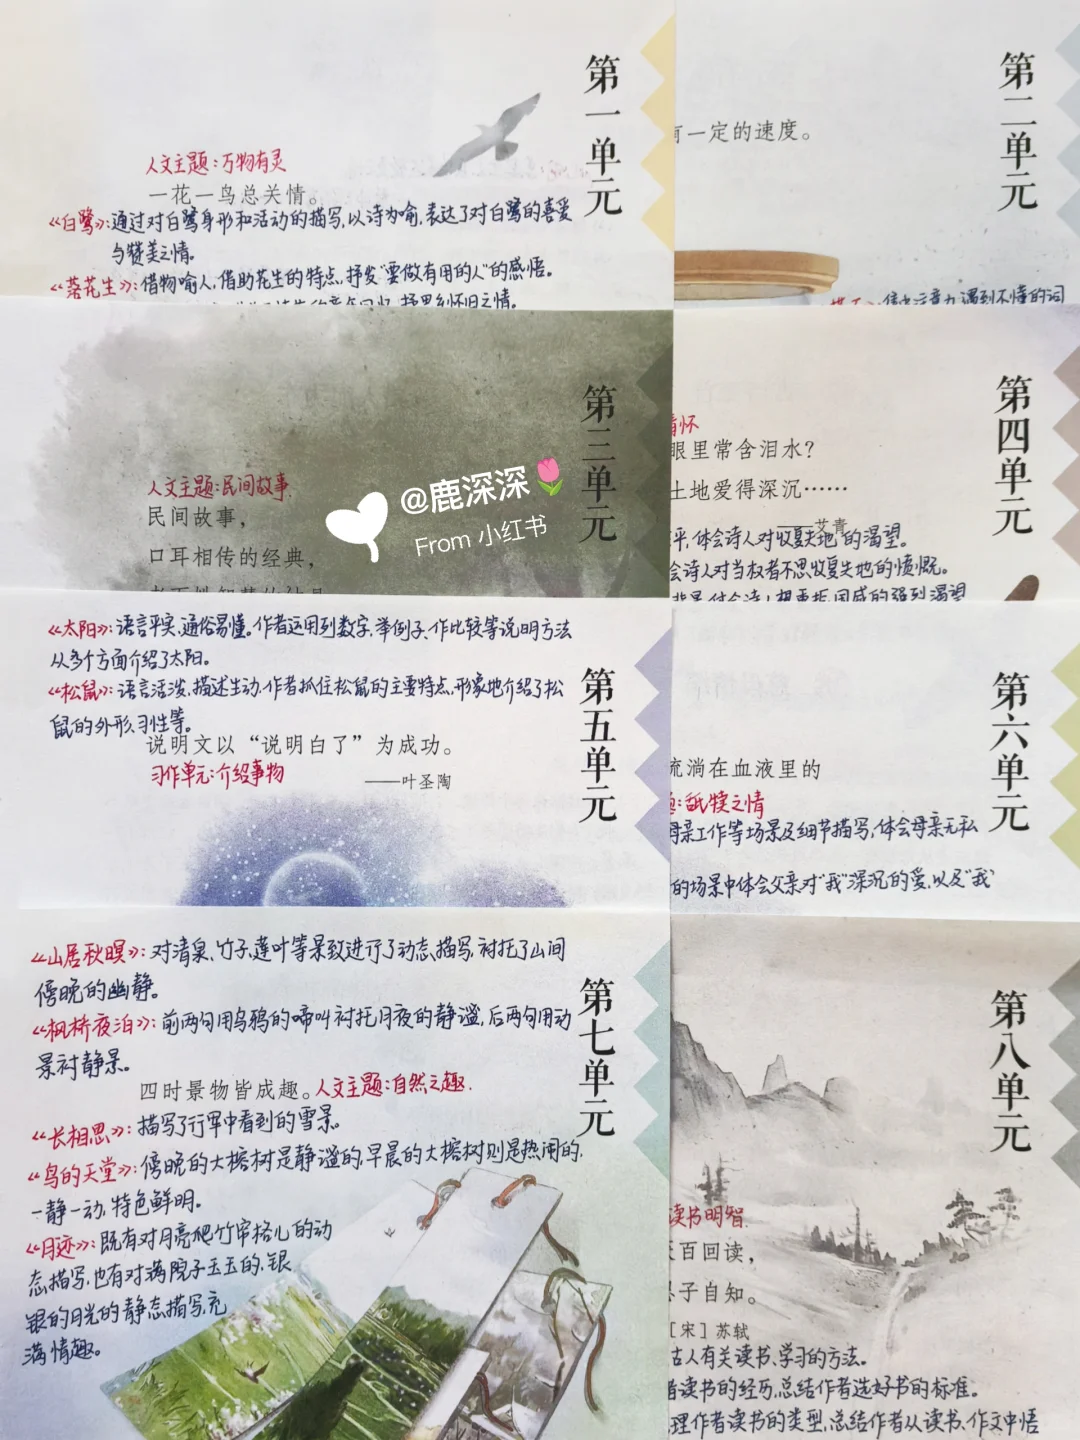 第一单元
人文主题:万物有灵
一花一鸟总关情。
《白鹭》:通过对白鹭身形和活动的描写,以诗为喻,表达了对白鹭的喜爱
与赞美之情。
《落花生》:借物喻人,借助花生的特点,抒发“要做有用的人”的感悟。
第二单元
有一定的速度。
集中注意力,遇到不懂的词
第三单元
人文主题:民间故事
民间故事,
口耳相传的经典,
@鹿深深
From 小红书
第四单元
情怀
眼里常含泪水?
土地爱得深沉……
——艾青
平,体会诗人对收复失地的渴望。
会诗人对当权者不思收复失地的愤慨。
第五单元
《太阳》:语言平实,通俗易懂。作者运用列数字、举例子、作比较等说明方法
从多个方面介绍了太阳。
《松鼠》:语言活泼,描述生动,作者抓住松鼠的主要特点,形象地介绍了松
鼠的外形、习性等。
说明文以“说明白了”为成功。
——叶圣陶
习作单元:介绍事物
第六单元
流淌在血液里的
舐犊之情
母亲工作等场景及细节描写,体会母亲无私
的场景中体会父亲对“我”深沉的爱,以及“我”
第七单元
《山居秋暝》:对清泉、竹子、莲叶等景致进行了动态描写,衬托了山间
傍晚的幽静。
《枫桥夜泊》:前两句用乌鸦的啼叫衬托月夜的静谧,后两句用动
景衬静景。
四时景物皆成趣。人文主题:自然之趣
《长相思》:描写了行军中看到的雪景。
《鸟的天堂》:傍晚的大榕树是静谧的,早晨的大榕树则是热闹的,
一静一动,特色鲜明。
《月迹》:既有对月亮爬竹帘格儿的动
态描写,也有对满院子玉玉的、银
银的月光的静态描写,充
满情趣。
第八单元
读书明智
百回读,
子自知。
[宋]苏轼
古人有关读书、学习的方法。
者读书的经历,总结作者选好书的标准。
理作者读书的类型,总结作者从读书、作文中悟